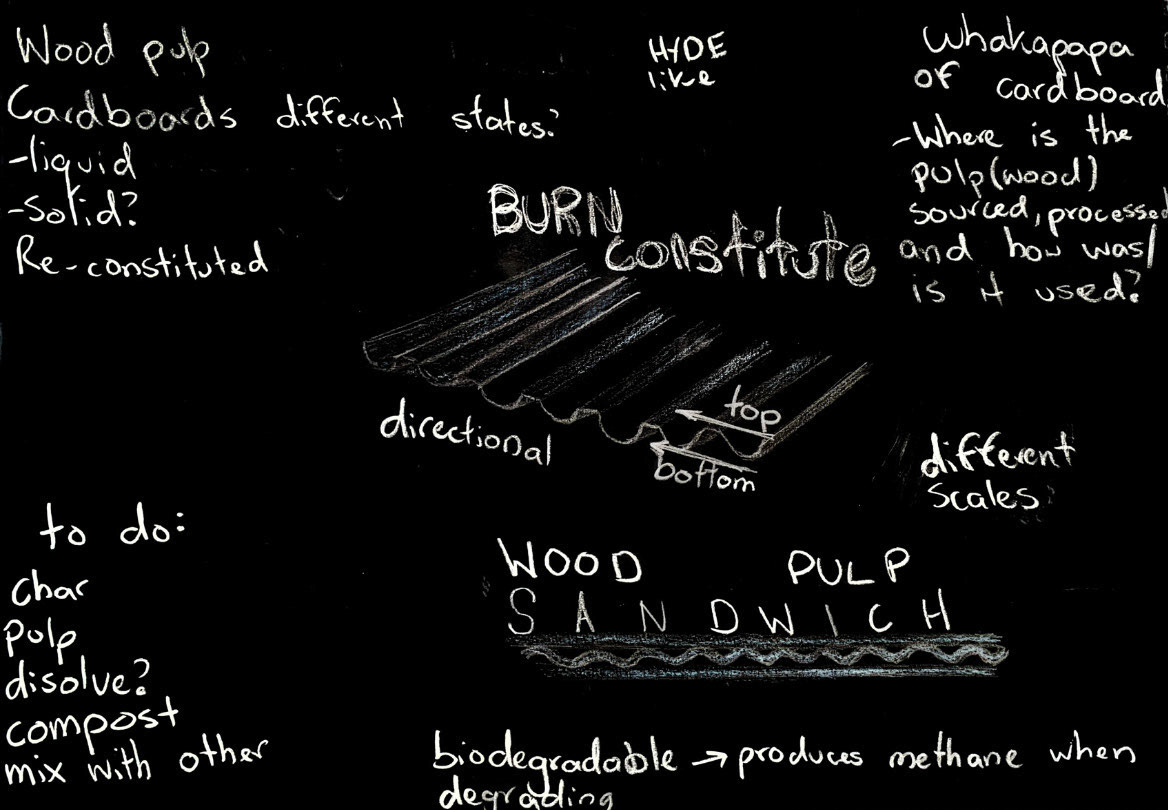 Wood pulp
Cardboards different states?
-liquid
-solid?
Re-constituted
HYDE
like
Whakapapa
of cardboard
-Where is the
pulp(wood)
sourced, processed
and how was/
is it used?
BURN
Constitute
directional
top
bottom
different
scales
to do:
char
pulp
disolve?
compost
mix with other
WOOD PULP
SANDWICH
biodegradable → produces methane when
degrading